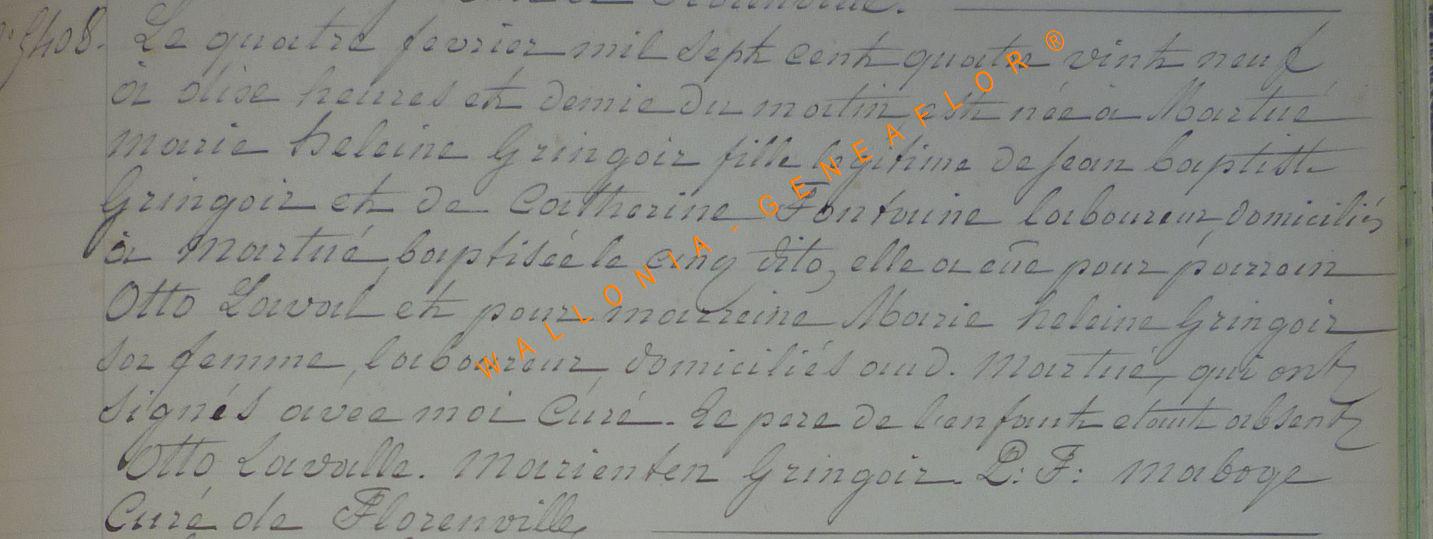 Le quatre fevrier mil sept cent quatre vint neuf
à dixe heures et demie du matin, est née à Martué
Marie heleine Gringoir fille legitime de Jean baptiste
Gringoir et de Catherine Fontaine laboureur, domiciliés
à Martué, baptisée le cinq dito, elle a eûe pour parrain
Otto Laval et pour marreine Marie heleine Gringoir
sa femme, laboureur, domiciliés aud. Martué, qui ont
signés avec moi Curé. Le pere de l'enfant etant absent
Otto Lavalle. Marienten Gringoir. P: F: Maboge
Curé de Florenville
WALLONIA-GENEAFLOR®